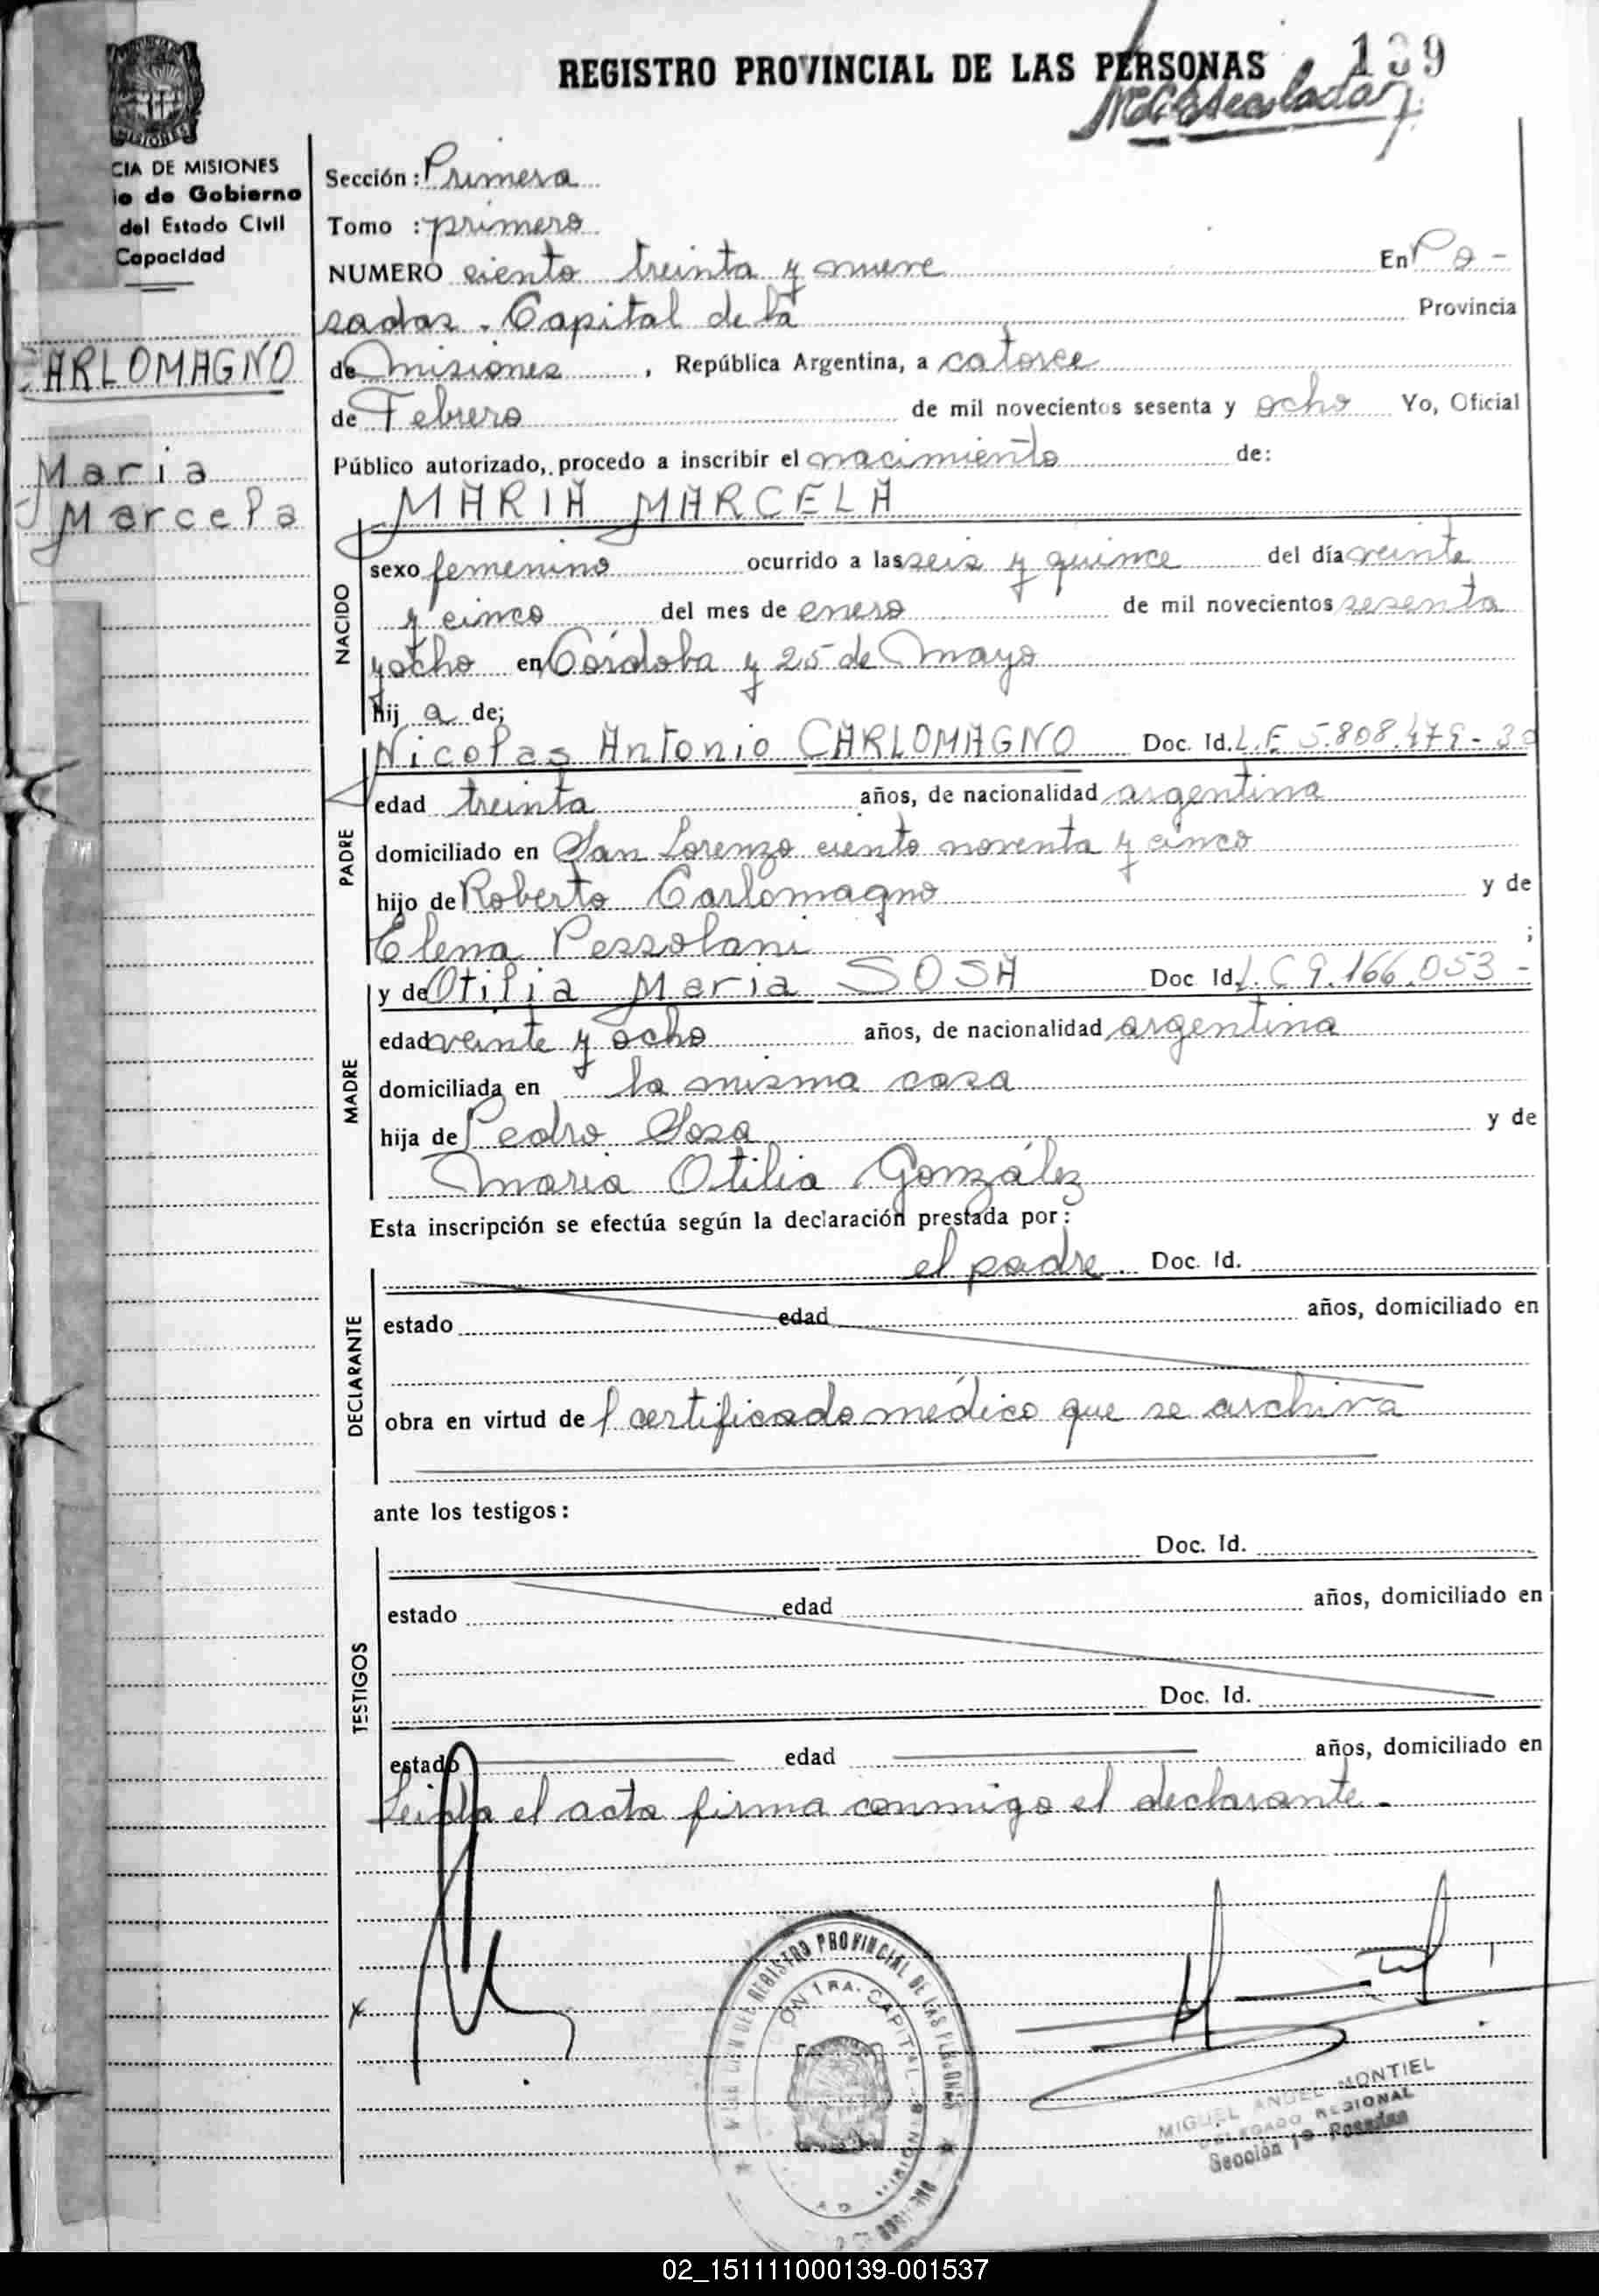 REGISTRO PROVINCIAL DE LAS PERSONAS
139
MISIONES
CIA DE MISIONES
io de Gobierno
del Estado Civil
Capacidad
CARLOMAGNO
Maria
Marcela
Sección: Primera
Tomo : primero
NUMERO ciento treinta y nueve En Po-
sadas. Capital de la Provincia
de Misiones, República Argentina, a catorce
de Febrero de mil novecientos sesenta y ocho Yo, Oficial
Público autorizado, procedo a inscribir el nacimiento de:
MARIA MARCELA
NACIDO
sexo femenino ocurrido a las seis y quince del día veinte
y cinco del mes de enero de mil novecientos sesenta
y ocho en Córdoba y 25 de Mayo
hij a de;
PADRE
Nicolas Antonio CARLOMAGNO Doc. Id. L.E 5.808.479-30
edad treinta años, de nacionalidad argentina
domiciliado en San Lorenzo ciento noventa y cinco
hijo de Roberto Carlomagno y de
Elena Pezzolani ;
MADRE
y de Otilia Maria SOSA Doc Id. L.C 9.166.053-
edad veinte y ocho años, de nacionalidad argentina
domiciliada en la misma casa
hija de Pedro Sosa y de
Maria Otilia González
Esta inscripción se efectúa según la declaración prestada por:
DECLARANTE
el padre. Doc. Id.
estado edad años, domiciliado en
obra en virtud de l certificado médico que se archiva
ante los testigos:
TESTIGOS
Doc. Id.
estado edad años, domiciliado en
Doc. Id.
estado edad años, domiciliado en
Leida el acta firma conmigo el declarante.-
REGISTRO PROVINCIAL DE LAS PERSONAS
1RA. CAPITAL
MIGUEL ANGEL MONTIEL
DELEGADO REGIONAL
Sección 1º Posadas
02_151111000139-001537